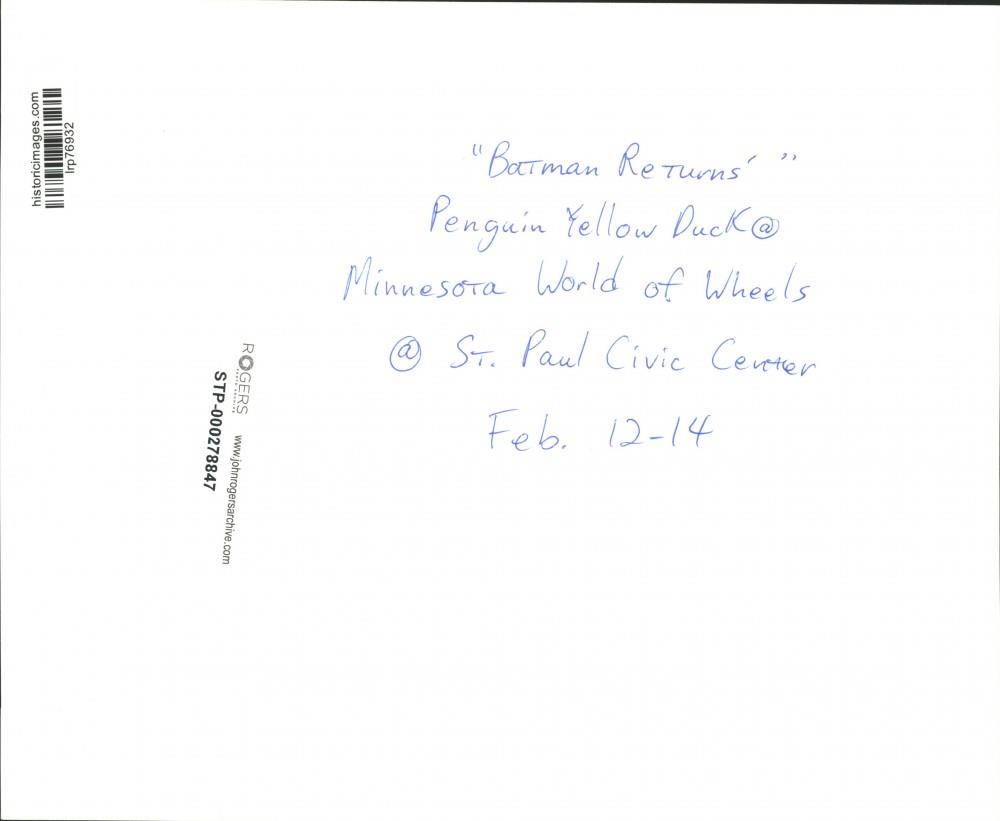 historicimages.com
lrp76932
"Batman Returns' "
Penguin Yellow Duck @
Minnesota World of Wheels
@ St. Paul Civic Center
Feb. 12-14
ROGERS
www.johnrogersarchive.com
STP-000278847